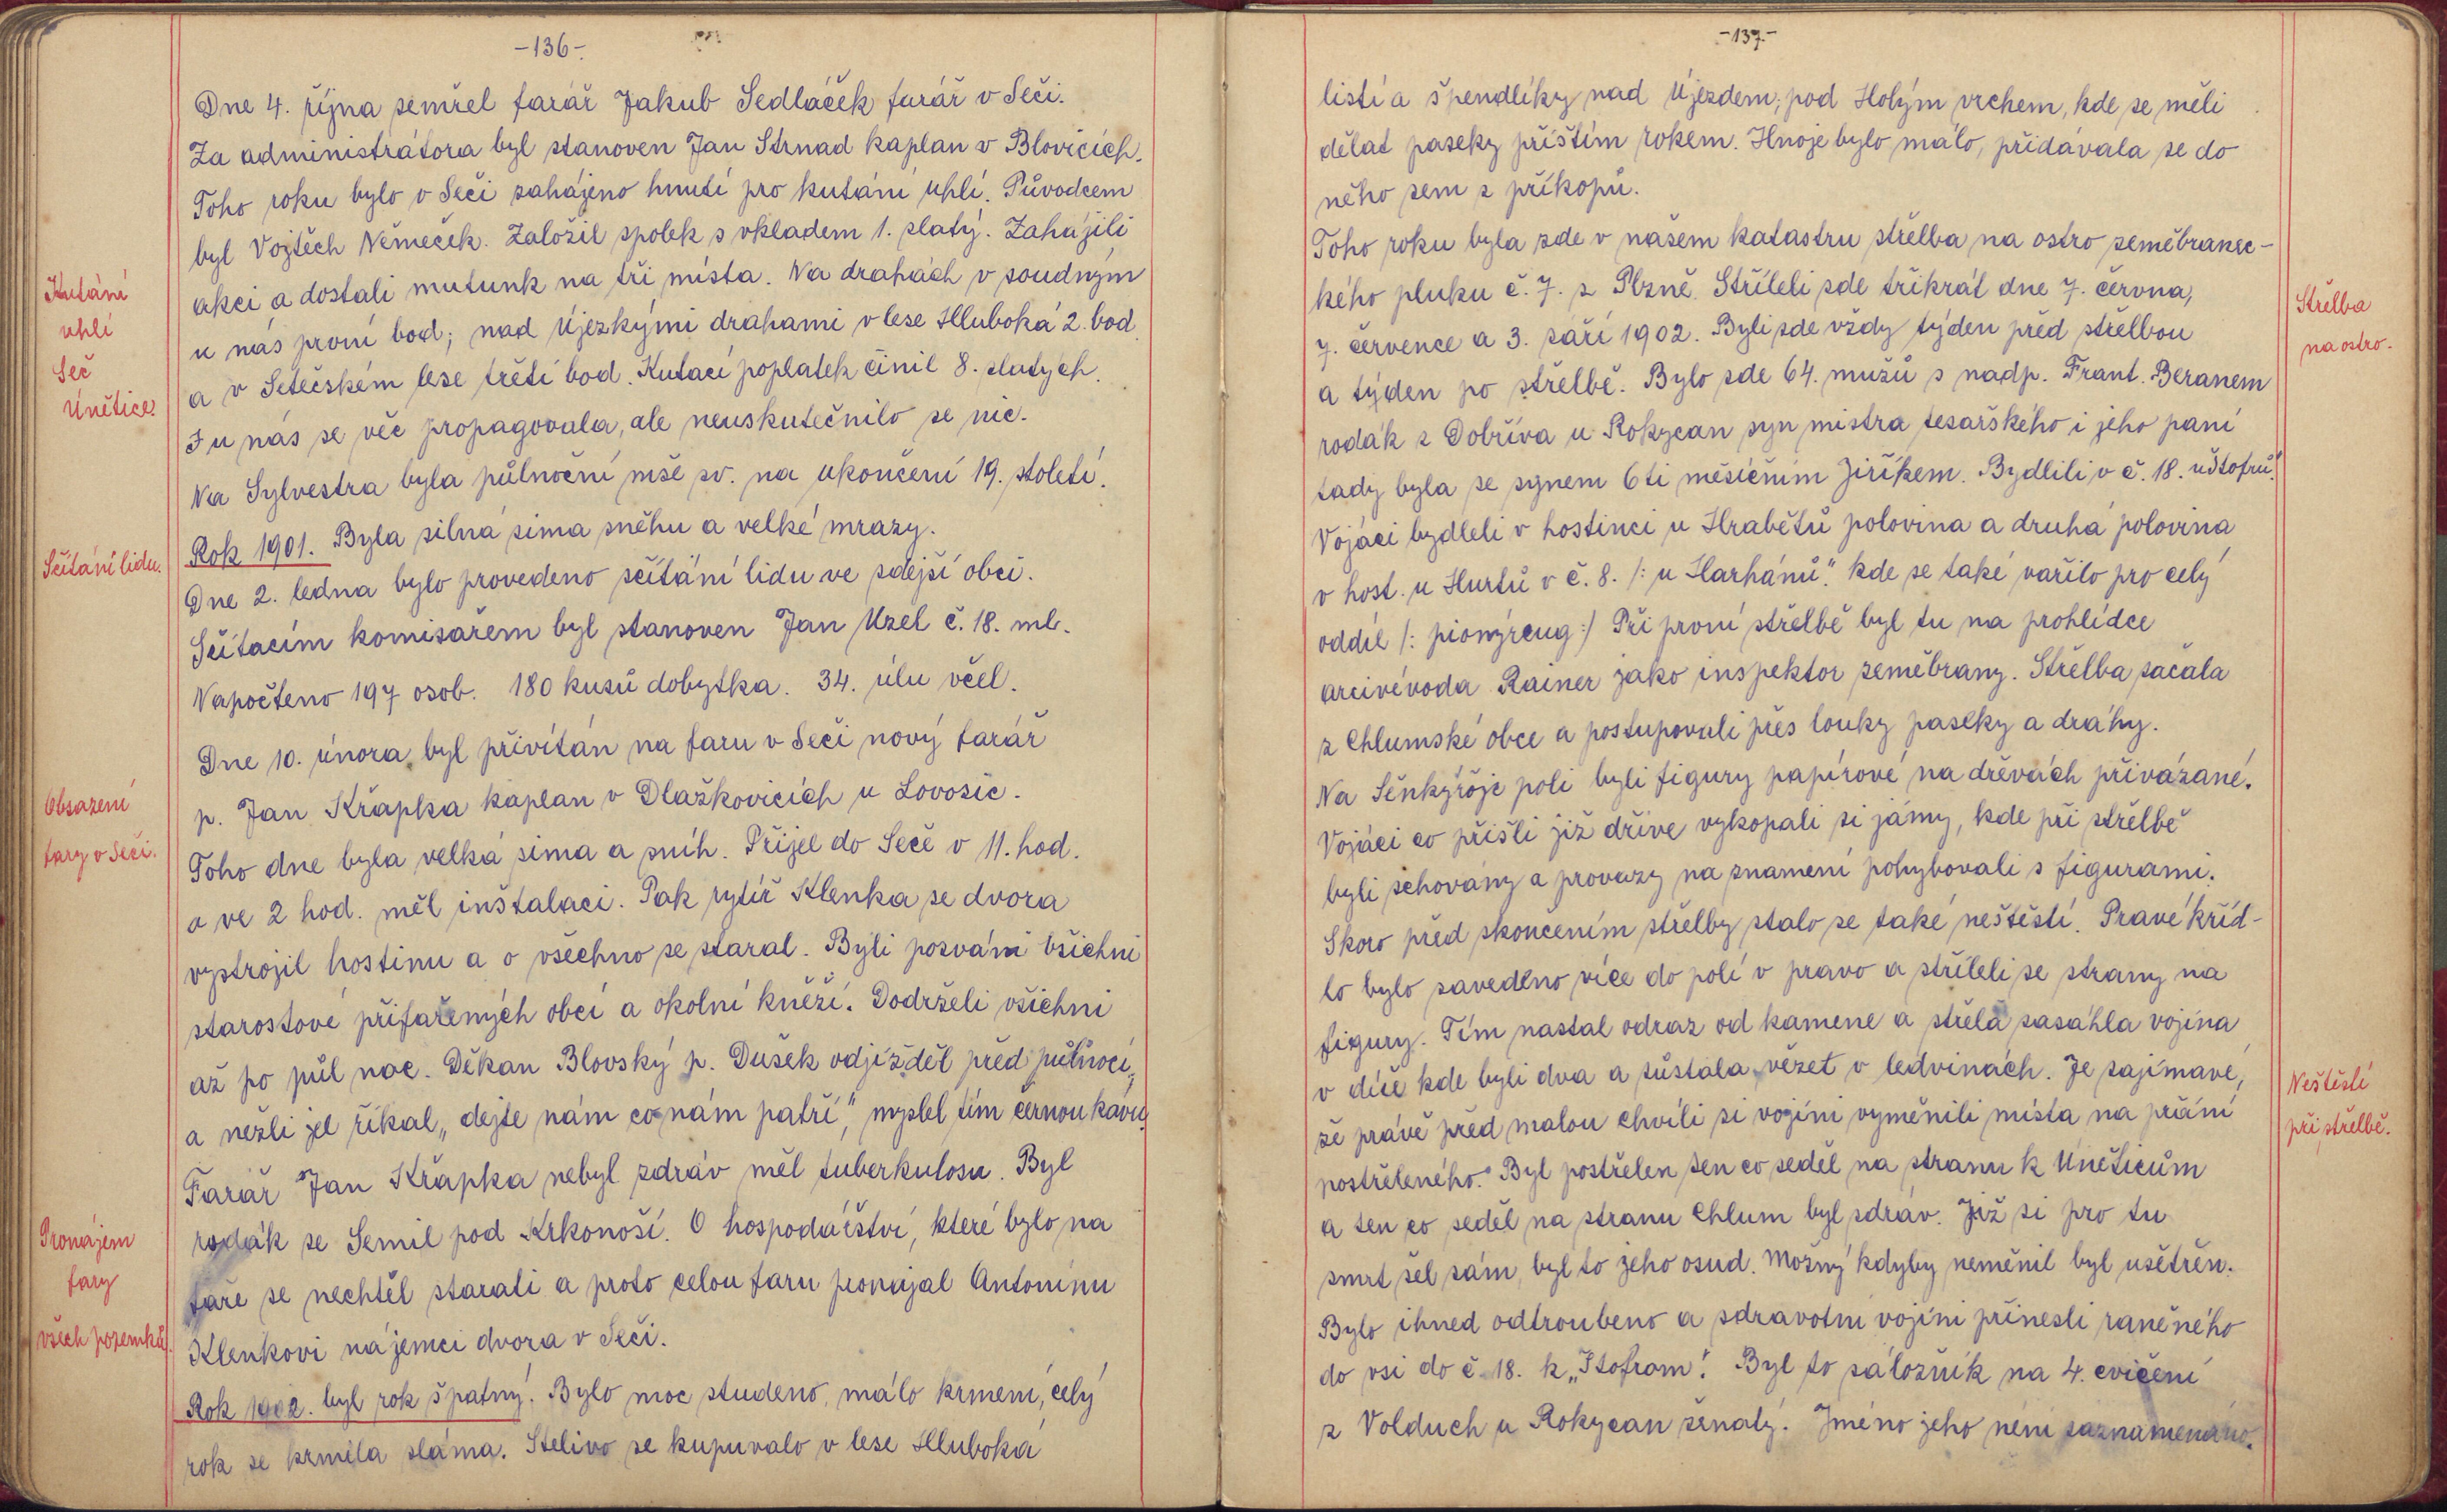 -136-
Dne 4. října zemřel farář Jakub Sedláček farář v Seči.
Za administrátora byl stanoven Jan Strnad kaplan v Blovicích.
Toho roku bylo v Seči zahájeno hnutí pro kutání uhlí. Původcem
byl Vojtěch Němeček. Založil spolek s vkladem 1. zlatý. Zahájili
akci a dostali mutunk na tři místa. Na drahách v soudným
u nás první bod; nad Újezkými drahami v lese Hluboká 2. bod
a v Setečském lese třetí bod. Kutací poplatek činil 8. zlatých.
I u nás se věc propagovala, ale neuskutečnilo se nic.
Na Sylvestra byla půlnoční mše sv. na ukončení 19. století.
Rok 1901. Byla silná zima sněhu a velké mrazy.
Dne 2. ledna bylo provedeno sčítání lidu ve zdejší obci.
Sčítacím komisařem byl stanoven Jan Uzel č. 18. ml.
Napočteno 197 osob. 180 kusů dobytka. 34. úlu včel.
Dne 10. února byl přivítán na faru v Seči nový farář
p. Jan Křapka kaplan v Dlažkovicích u Lovosic.
Toho dne byla velká zima a sníh. Přijel do Seče v 11. hod.
a ve 2 hod. měl inštalaci. Pak rytíř Klenka ze dvora
vystrojil hostinu a o všechno se staral. Byli pozváni všichni
starostové přifařených obcí a okolní kněží. Dodrželi všichni
až po půl noc. Děkan Blovský p. Dušek odjížděl před půlnocí,
a nežli jel říkal „dejte nám co nám patří," myslel tím černou kávu.
Farář Jan Křapka nebyl zdráv měl tuberkulosu. Byl
rodák ze Semil pod Krkonoší. O hospodářství, které bylo na
faře se nechtěl starati a proto celou faru pronajal Antonínu
Klenkovi nájemci dvora v Seči.
Rok 1902. byl rok špatný. Bylo moc studeno, málo krmení, celý
rok se krmila sláma. Stelivo se kupuvalo v lese Hluboká
Kutání
uhlí
Seč
Únětice.
Sčítání lidu.
Obsazení
fary v Seči.
Pronájem
fary
všech pozemků.
-137-
listí a špendlíky nad Újezdem, pod Holým vrchem, kde se měli
dělat paseky příštím rokem. Hnoje bylo málo, přidávala se do
něho zem z příkopů.
Toho roku byla zde v našem katastru střelba na ostro zeměbranec-
kého pluku č. 7. z Plzně. Stříleli zde třikrát dne 7. června,
7. července a 3. září 1902. Byli zde vždy týden před střelbou
a týden po střelbě. Bylo zde 64. mužů s nadp. Frant. Beranem
rodák z Dobříva u Rokycan syn mistra tesařského i jeho paní
tady byla se synem 6ti měsíčním Jiříkem. Bydlili v č. 18. u Štofrů."
Vojáci bydleli v hostinci u Hrabětů polovina a druhá polovina
v host. u Hurtů v č. 8. /: u Harhánů." kde se také vařilo pro celý
oddíl /: pionýrcug :/ Při první střelbě byl tu na prohlídce
arcivévoda Rainer jako inspektor zeměbrany. Střelba začala
z Chlumské obce a postupovali přes louky paseky a dráhy.
Na Šénkýřóje poli byli figury papírové na dřevách přivázané.
Vojáci co přišli již dříve vykopali si jámy, kde při střelbě
byli schovány a provazy na znamení pohybovali s figurami.
Skoro před skončením střelby stalo se také neštěstí. Pravé kříd-
lo bylo zavedeno více do polí v pravo a stříleli se strany na
figury. Tím nastal odraz od kamene a střela zasáhla vojína
v díře kde byli dva a zůstala vězet v ledvinách. Je zajímavé,
že právě před malou chvílí si vojíni vyměnili místa na přání
postřeleného. Byl postřelen ten co seděl na stranu k Úněticům
a ten co seděl na stranu Chlum byl zdráv. Již si pro tu
smrt šel sám, byl to jeho osud. Možný kdyby neměnil byl ušetřen.
Bylo ihned odtroubeno a zdravotní vojíni přinesli raněného
do vsi do č. 18. k „Štofrom". Byl to záložník na 4. cvičení
z Volduch u Rokycan ženatý. Jméno jeho není zaznamenáno.
Střelba
na ostro.
Neštěstí
při střelbě.